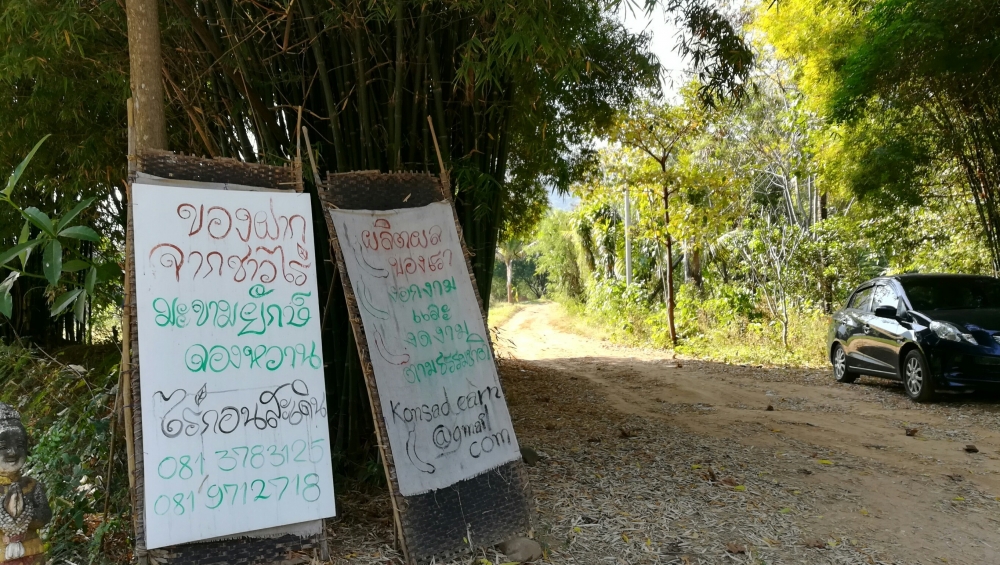 ของฝาก
จากชาวไร่
มะขามยักษ์
ดองหวาน
ไร่ก้อนสะเดิน
081 3783125
081 9712718
ผลิตผล
ของเรา
งอกงาม
และ
งดงาม
ตามธรรมชาติ
Konsad.earn
@gmail
com